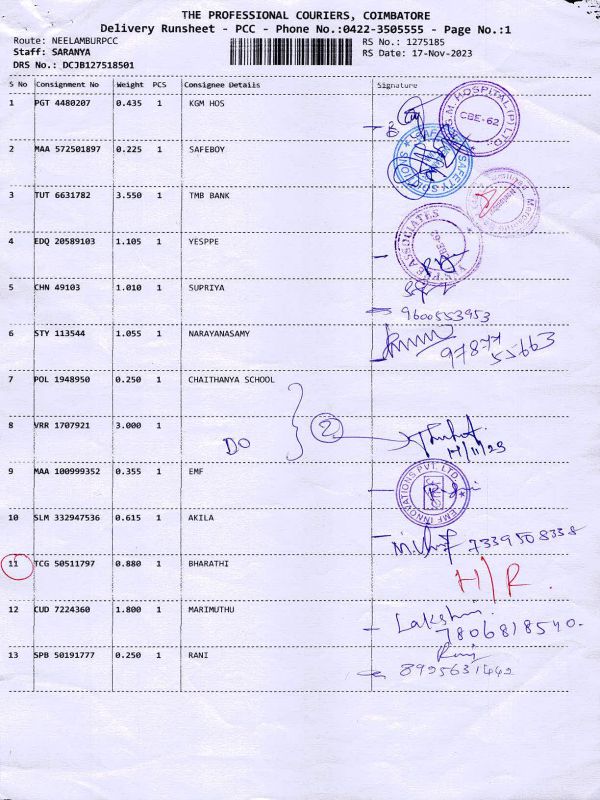 THE PROFESSIONAL COURIERS, COIMBATORE
Delivery Runsheet - PCC - Phone No.:0422-3505555 - Page No.:1
Route: NEELAMBURPCC RS No.: 1275185
Staff: SARANYA RS Date: 17-Nov-2023
DRS No.: DCJB127518501
S No Consignment No Weight PCS Consignee Details Signature
1 PGT 4480207 0.435 1 KGM HOS
G.M. HOSPITAL (P) LTD CBE-62
2 MAA 572501897 0.225 1 SAFEBOY
SAFETY SOLUTIONS
3 TUT 6631782 3.550 1 TMB BANK
4 EDQ 20589103 1.105 1 YESPPE
ASSOCIATES
5 CHN 49103 1.010 1 SUPRIYA
9600553953
6 STY 113544 1.055 1 NARAYANASAMY
97877
55663
7 POL 1948950 0.250 1 CHAITHANYA SCHOOL
8 VRR 1707921 3.000 1
DO 2
17/11/23
9 MAA 100999352 0.355 1 EMF
EMF INNOVATIONS PVT. LTD
10 SLM 332947536 0.615 1 AKILA
7339508338
11 TCG 50511797 0.880 1 BHARATHI
H/R.
12 CUD 7224360 1.800 1 MARIMUTHU
Lakshmi
7806818540.
13 SPB 50191777 0.250 1 RANI
Rani
8925631442